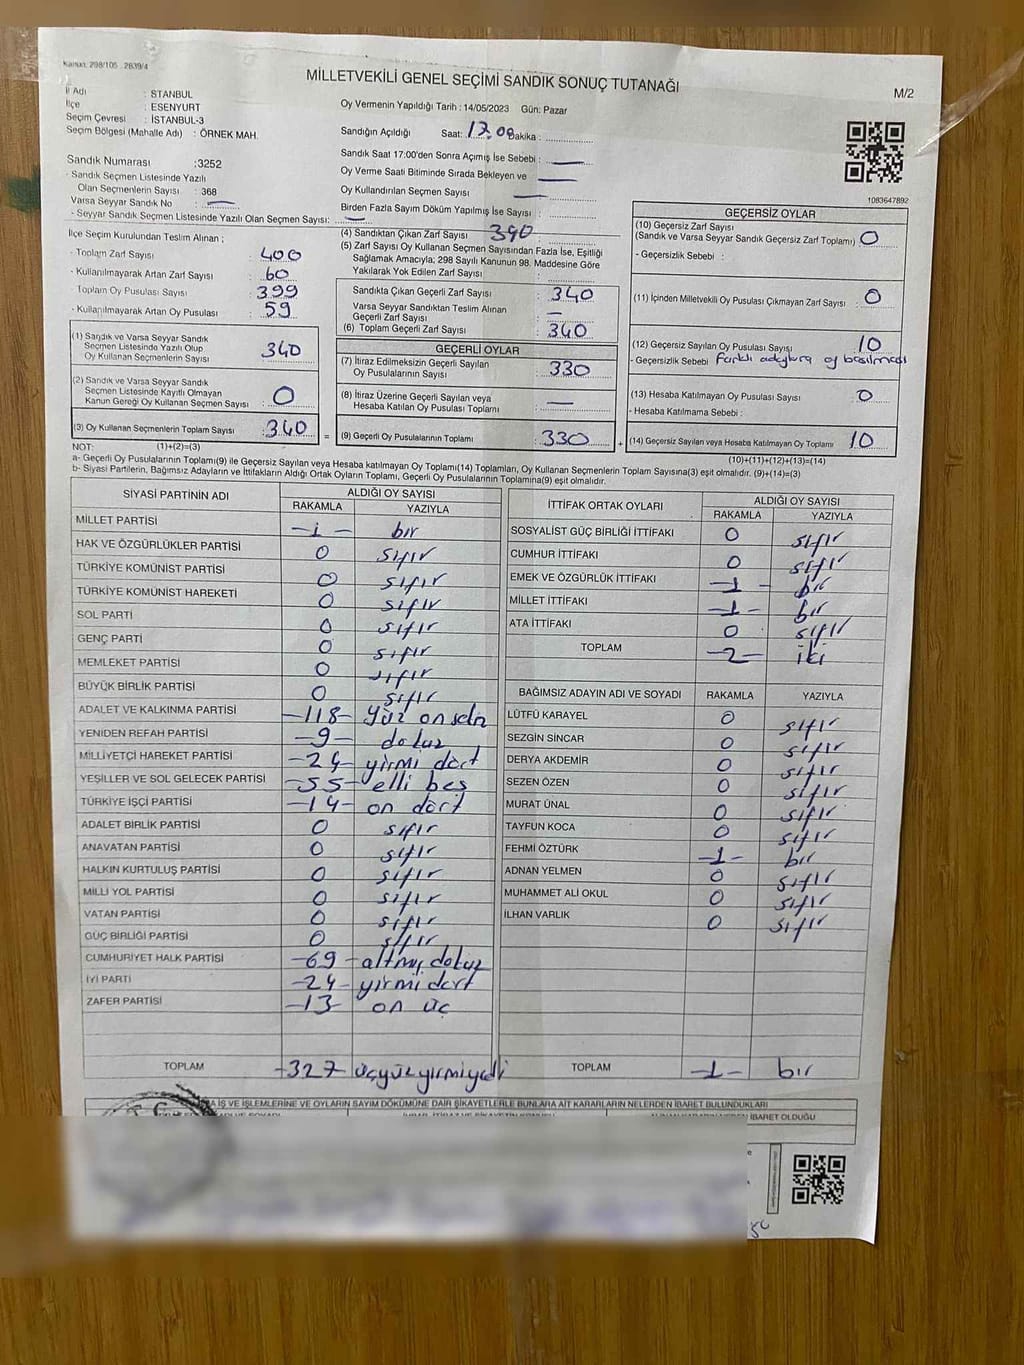 Kanun: 298/105 2839/4
MİLLETVEKİLİ GENEL SEÇİMİ SANDIK SONUÇ TUTANAĞI
M/2
İl Adı : STANBUL
İlçe : ESENYURT
Seçim Çevresi : İSTANBUL-3
Seçim Bölgesi (Mahalle Adı) : ÖRNEK MAH.
Oy Vermenin Yapıldığı Tarih : 14/05/2023 Gün: Pazar
Sandığın Açıldığı Saat: 17.00 Dakika :
Sandık Saat 17:00'den Sonra Açımış İse Sebebi : —
Oy Verme Saati Bitiminde Sırada Bekleyen ve
Oy Kullandırılan Seçmen Sayısı —
Birden Fazla Sayım Döküm Yapılmış İse Sayısı :
Sandık Numarası :3252
- Sandık Seçmen Listesinde Yazılı
Olan Seçmenlerin Sayısı : 368
Varsa Seyyar Sandık No : —
- Seyyar Sandık Seçmen Listesinde Yazılı Olan Seçmen Sayısı: —
1083647892
İlçe Seçim Kurulundan Teslim Alınan ;
- Toplam Zarf Sayısı : 400
- Kullanılmayarak Artan Zarf Sayısı : 60
- Toplam Oy Pusulası Sayısı : 399
- Kullanılmayarak Artan Oy Pusulası : 59
(1) Sandık ve Varsa Seyyar Sandık
Seçmen Listesinde Yazılı Olup
Oy Kullanan Seçmenlerin Sayısı : 340
(2) Sandık ve Varsa Seyyar Sandık
Seçmen Listesinde Kayıtlı Olmayan
Kanun Gereği Oy Kullanan Seçmen Sayısı : 0
(3) Oy Kullanan Seçmenlerin Toplam Sayısı : 340
(4) Sandıktan Çıkan Zarf Sayısı : 340
(5) Zarf Sayısı Oy Kullanan Seçmen Sayısından Fazla İse, Eşitliği
Sağlamak Amacıyla; 298 Sayılı Kanunun 98. Maddesine Göre
Yakılarak Yok Edilen Zarf Sayısı :
Sandıkta Çıkan Geçerli Zarf Sayısı : 340
Varsa Seyyar Sandıktan Teslim Alınan
Geçerli Zarf Sayısı : —
(6) Toplam Geçerli Zarf Sayısı : 340
GEÇERLİ OYLAR
(7) İtiraz Edilmeksizin Geçerli Sayılan
Oy Pusulalarının Sayısı : 330
(8) İtiraz Üzerine Geçerli Sayılan veya
Hesaba Katılan Oy Pusulası Toplamı : —
= (9) Geçerli Oy Pusulalarının Toplamı : 330 +
GEÇERSİZ OYLAR
(10) Geçersiz Zarf Sayısı
(Sandık ve Varsa Seyyar Sandık Geçersiz Zarf Toplamı) : 0
- Geçersizlik Sebebi :
(11) İçinden Milletvekili Oy Pusulası Çıkmayan Zarf Sayısı : 0
(12) Geçersiz Sayılan Oy Pusulası Sayısı : 10
- Geçersizlik Sebebi : Farklı adaylara oy basılması
(13) Hesaba Katılmayan Oy Pusulası Sayısı : 0
- Hesaba Katılmama Sebebi :
(14) Geçersiz Sayılan veya Hesaba Katılmayan Oy Toplamı : 10
NOT: (1)+(2)=(3) (10)+(11)+(12)+(13)=(14)
a- Geçerli Oy Pusulalarının Toplamı(9) ile Geçersiz Sayılan veya Hesaba katılmayan Oy Toplamı(14) Toplamları, Oy Kullanan Seçmenlerin Toplam Sayısına(3) eşit olmalıdır. (9)+(14)=(3)
b- Siyasi Partilerin, Bağımsız Adayların ve İttifakların Aldığı Ortak Oyların Toplamı, Geçerli Oy Pusulalarının Toplamına(9) eşit olmalıdır.
SİYASİ PARTİNİN ADI ALDIĞI OY SAYISI
RAKAMLA YAZIYLA
MİLLET PARTİSİ -1- bir
HAK VE ÖZGÜRLÜKLER PARTİSİ 0 sıfır
TÜRKİYE KOMÜNİST PARTİSİ 0 sıfır
TÜRKİYE KOMÜNİST HAREKETİ 0 sıfır
SOL PARTİ 0 sıfır
GENÇ PARTİ 0 sıfır
MEMLEKET PARTİSİ 0 sıfır
BÜYÜK BİRLİK PARTİSİ 0 sıfır
ADALET VE KALKINMA PARTİSİ -118- yüz onsekiz
YENİDEN REFAH PARTİSİ -9- dokuz
MİLLİYETÇİ HAREKET PARTİSİ -24- yirmi dört
YEŞİLLER VE SOL GELECEK PARTİSİ -55- elli beş
TÜRKİYE İŞÇİ PARTİSİ -14- on dört
ADALET BİRLİK PARTİSİ 0 sıfır
ANAVATAN PARTİSİ 0 sıfır
HALKIN KURTULUŞ PARTİSİ 0 sıfır
MİLLİ YOL PARTİSİ 0 sıfır
VATAN PARTİSİ 0 sıfır
GÜÇ BİRLİĞİ PARTİSİ 0 sıfır
CUMHURİYET HALK PARTİSİ -69- altmış dokuz
İYİ PARTİ -24- yirmi dört
ZAFER PARTİSİ -13- on üç
TOPLAM -327- üçyüzyirmiyedi
İTTİFAK ORTAK OYLARI ALDIĞI OY SAYISI
RAKAMLA YAZIYLA
SOSYALİST GÜÇ BİRLİĞİ İTTİFAKI 0 sıfır
CUMHUR İTTİFAKI 0 sıfır
EMEK VE ÖZGÜRLÜK İTTİFAKI -1- bir
MİLLET İTTİFAKI -1- bir
ATA İTTİFAKI 0 sıfır
TOPLAM -2- iki
BAĞIMSIZ ADAYIN ADI VE SOYADI RAKAMLA YAZIYLA
LÜTFÜ KARAYEL 0 sıfır
SEZGİN SİNCAR 0 sıfır
DERYA AKDEMİR 0 sıfır
SEZEN ÖZEN 0 sıfır
MURAT ÜNAL 0 sıfır
TAYFUN KOCA 0 sıfır
FEHMİ ÖZTÜRK -1- bir
ADNAN YELMEN 0 sıfır
MUHAMMET ALİ OKUL 0 sıfır
İLHAN VARLIK 0 sıfır
TOPLAM -1- bir
İŞ VE İŞLEMLERİNE VE OYLARIN SAYIM DÖKÜMÜNE DAİR ŞİKAYETLERLE BUNLARA AİT KARARLARIN NELERDEN İBARET BULUNDUKLARI
İBARET OLDUĞU
T.C.